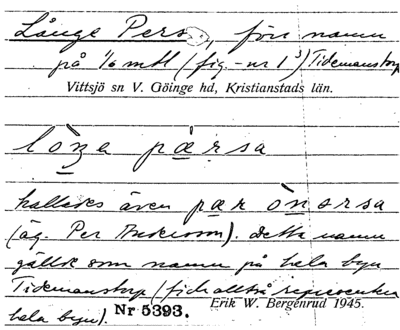 Långe Pers, förr namn
på 1/6 mtl (fig.-nr 1³) Tidemanstorp
Vittsjö sn V. Göinge hd, Kristianstads län.
lòŋa pærsa
kallades även pær ònərsa
(äg. Per Andersson). Detta namn
gällde som namn på hela byn
Tidemanstorp (fick alltså representera
hela byn).
Erik W. Bergenrud 1945.
Nr 5393.